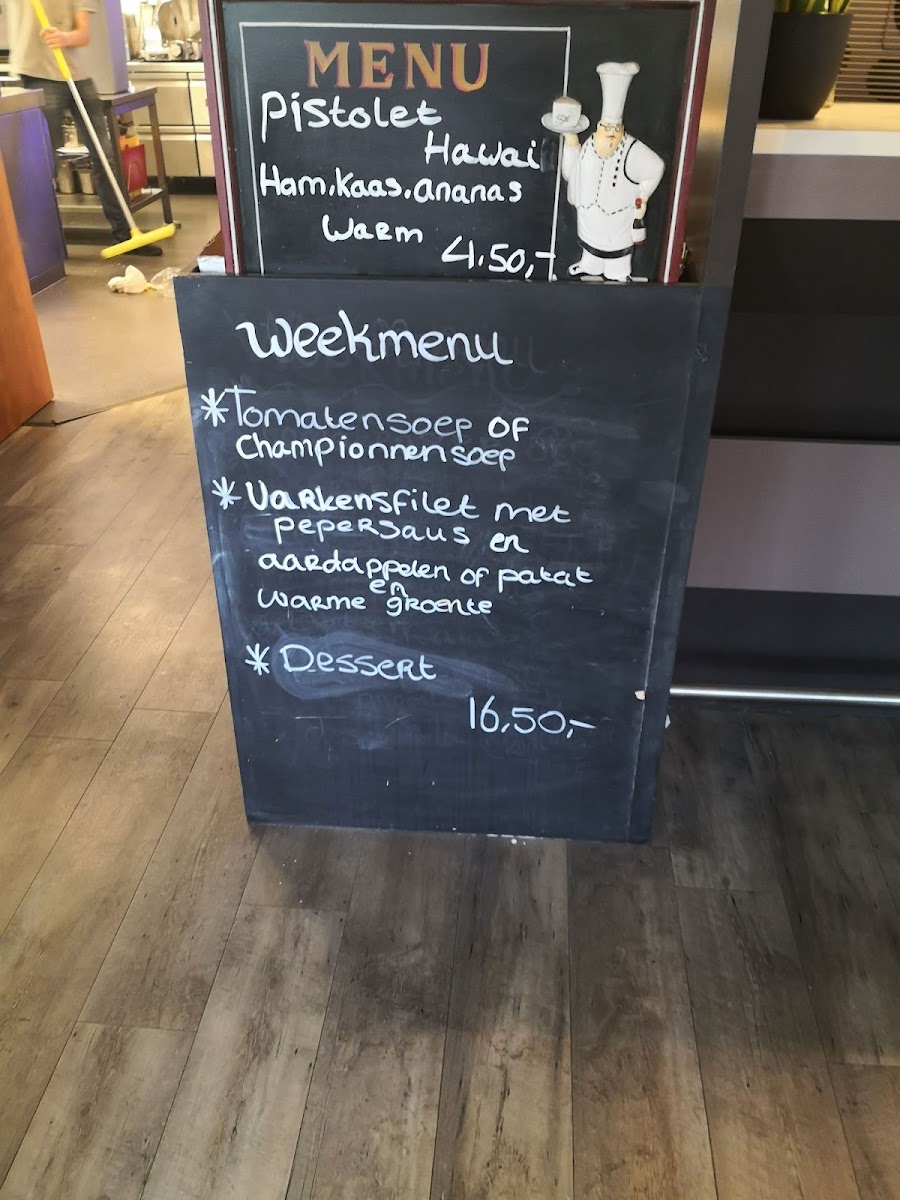 MENU
Pistolet
Hawai
Ham, Kaas, ananas
Warm
4,50,-
Weekmenu
* Tomatensoep of
Championnensoep
* Varkensfilet met
pepersaus en
aardappelen of patat
en
warme groente
* Dessert
16,50,-